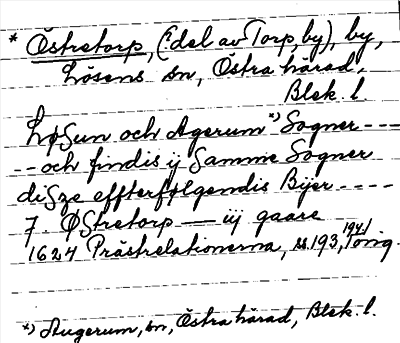 * Östretorp, (?del av Torp, by), by,
Lösens sn, Östra härad,
Blek. l.
Løsun och Agerum *) Sogner ----
-- och findis ij Samme Sogner
disze effterfølgendis Bÿer ----
7. Østretorp — iij gaare
1624 Prästrelationerna, s. 193, orig.
*) Augerum, sn, Östra härad, Blek. l.